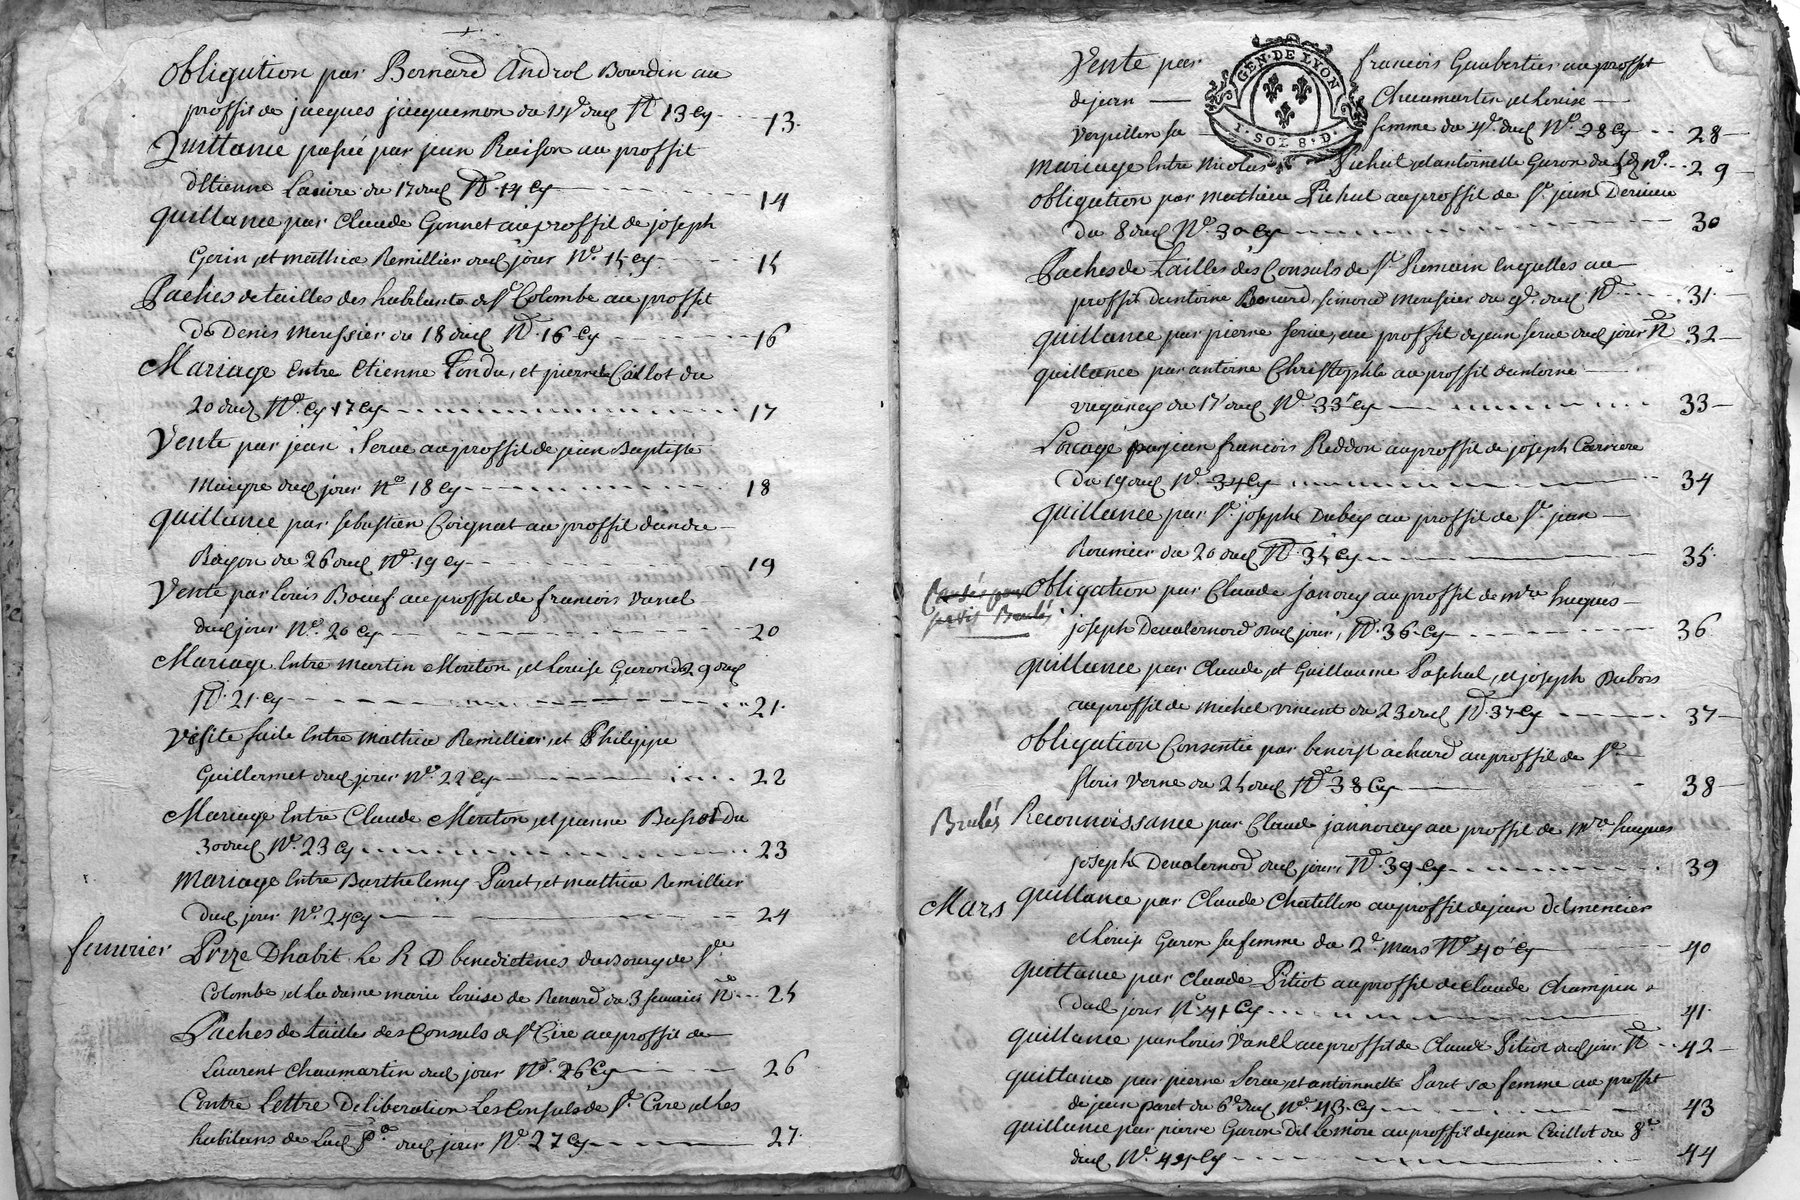 obligation par Bernard Androl Bourdin au
proffit de jacques jacquemon du 14e dud No 13 Cy 13.
Quittance passée par jean Raison au proffit
detienne du 17 dud No 14 Cy 14
quittance par Claude Gonnet au proffit de joseph
Gerin et mathie Remillier dud jour No 15 Cy 15
Paches de tailles des habitants de Ste Colombe au proffit
de Denis meussier du 18 dud No 16 Cy 16
Mariage Entre Etienne Fondu, et pierrete Caillot du
20 dud No Cy 17 Cy 17
Vente par jean Serve au proffit de jean Baptiste
Maigre dud jour No 18 Cy 18
quittance par sebastien Coignat au proffit dandre
Bajon du 26 dud No 19 Cy 19
Vente par Louis Bœuf au proffit de francois vanel
dud jour No 20 Cy 20
Mariage Entre martin Mouton, et Louise Garon du 29 dud
No 21 Cy 21.
Visite faite Entre mathie Remillier, et Philippe
Guillermet dud jour No 22 Cy 22
Mariage Entre Claude Mouton, et jeanne du
30 dud No 23 Cy 23
Mariage Entre Barthelemy Paret, et mathie Remillier
Dud jour No 24 Cy 24
feuvrier Prize Dhabit Le R D benedictines du bourg de Ste
Colombe, et La dame marie Louise de Renard du 3 feuvrier No 25
Paches de tailles des Consuls de St Cire au proffit de
Laurent Chaumartin dud jour No 26 Cy 26
Contre Lettre Deliberation Les Consuls de St Cire, et les
habitans de Lad Psse dud jour No 27 Cy 27.
Vente par francois Gaubertier au proffit
de jean Chaumartin et Louise
Verpillon sa femme du 4e dud No 28 Cy 28
GEN. DE LYON
1. SOL 8. D.
Mariage Entre Nicolas Pichat, et antoinette Garon du No 29
obligation par mathieu Pichat au proffit de Sr jean Derieu
Du 8 dud No 30 Cy 30
Paches de Tailles des Consuls de St Romain Engalles au
proffit dantoine Benard, simond meussier du 9e dud No 31.
quittance par pierre Serve, au proffit de jean Serve dud jour No 32
quittance par antoine Christophle au proffit dantoine
du 17e dud No 33 Cy 33
Loüage par jean francois Reddon au proffit de joseph Carriere
Du 19 dud No 34 Cy 34
quittance par Sr joseph Dubey au proffit de Sr jean
Roumier du 20 dud No 35 Cy 35.
obligation par Claude janoray au proffit de mre hugues
joseph Devalernord dud jour, No 36 Cy 36
quittance par Claude, et Guillaume Paschal, et joseph Dubois
au proffit de michel vincent du 23 dud No 37 Cy 37
obligation Consentie par benoist achard au proffit de Sr
floris Verne du 25 dud No 38 Cy 38
Brulés Reconnoissance par Claude jannoray au proffit de mre hugues
joseph Devalernod dud jour, No 39 Cy 39
Mars quittance par Claude Chatillon au proffit de jean Delmencier
et Louise Garon sa femme du 2e mars No 40 Cy 40
quittance par Claude Pitiot au proffit de Claude Champin
Dud jour No 41 Cy 41.
quittance par Louis Vanel au proffit de Claude Pitiot dud jour No 42
quittance par pierre Serve, et antoinnette Paret sa femme au proffit
de jean paret du 6e dud No 43 Cy 43
quittance par pierre Garon dit Lemore au proffit de jean Caillot du 8e
dud No 44 Cy 44